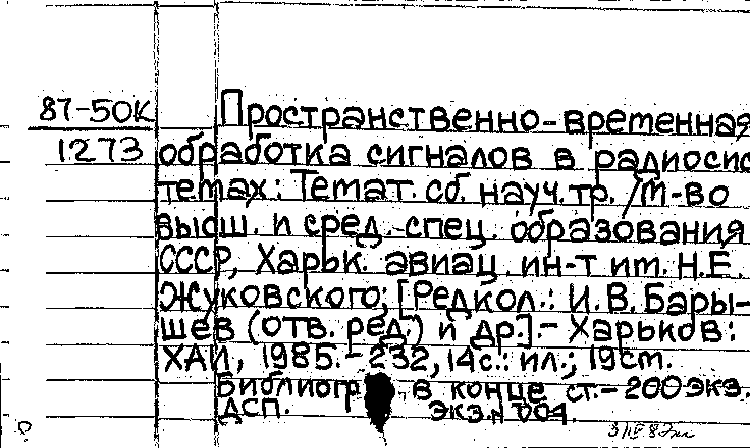 87-50К
1273
Пространственно-временная
обработка сигналов в радиосис
темах: Темат. сб. науч. тр. /М-во
высш. и сред. спец. образования
СССР, Харьк. авиац. ин-т им. Н.Е.
Жуковского; [Редкол.: И.В. Бары-
шев (отв. ред.) и др.].- Харьков:
ХАИ, 1985.- 232, 14с.: ил.; 19см.
Библиогр в конце ст.- 200экз.
ДСП. Экз.N 004.